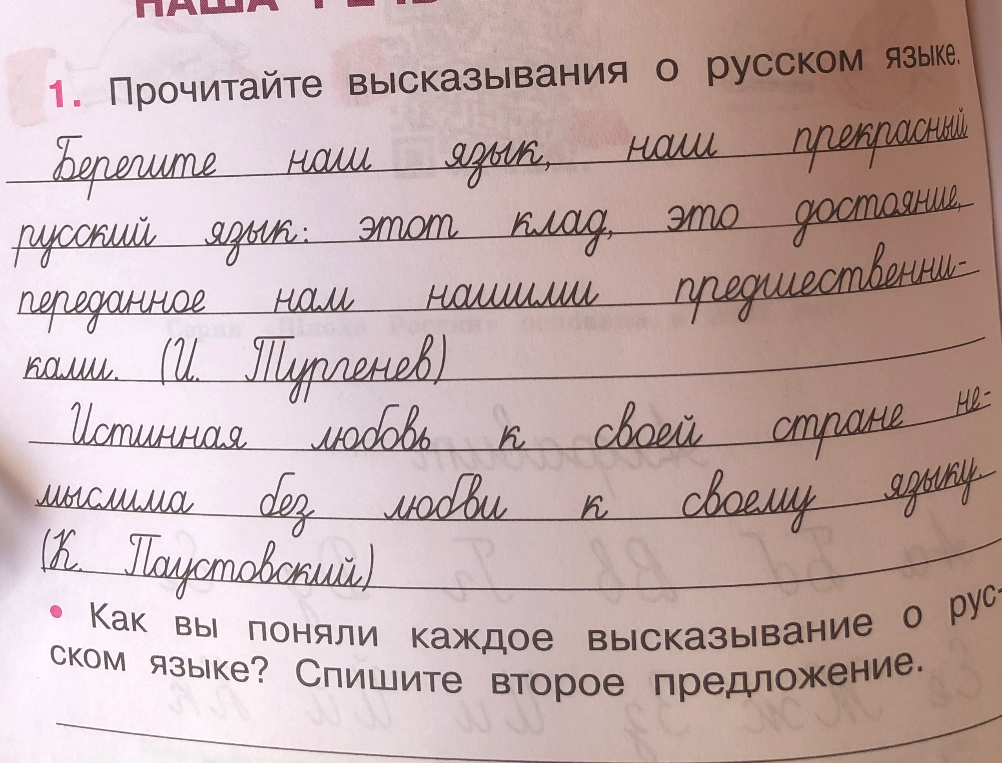 НАША РЕЧЬ
1. Прочитайте высказывания о русском языке.
Берегите наш язык, наш прекрасный
русский язык: этот клад, это достояние,
переданное нам нашими предшественни-
ками. (И. Тургенев)
Истинная любовь к своей стране не-
мыслима без любви к своему языку.
(К. Паустовский)
• Как вы поняли каждое высказывание о рус-
ском языке? Спишите второе предложение.